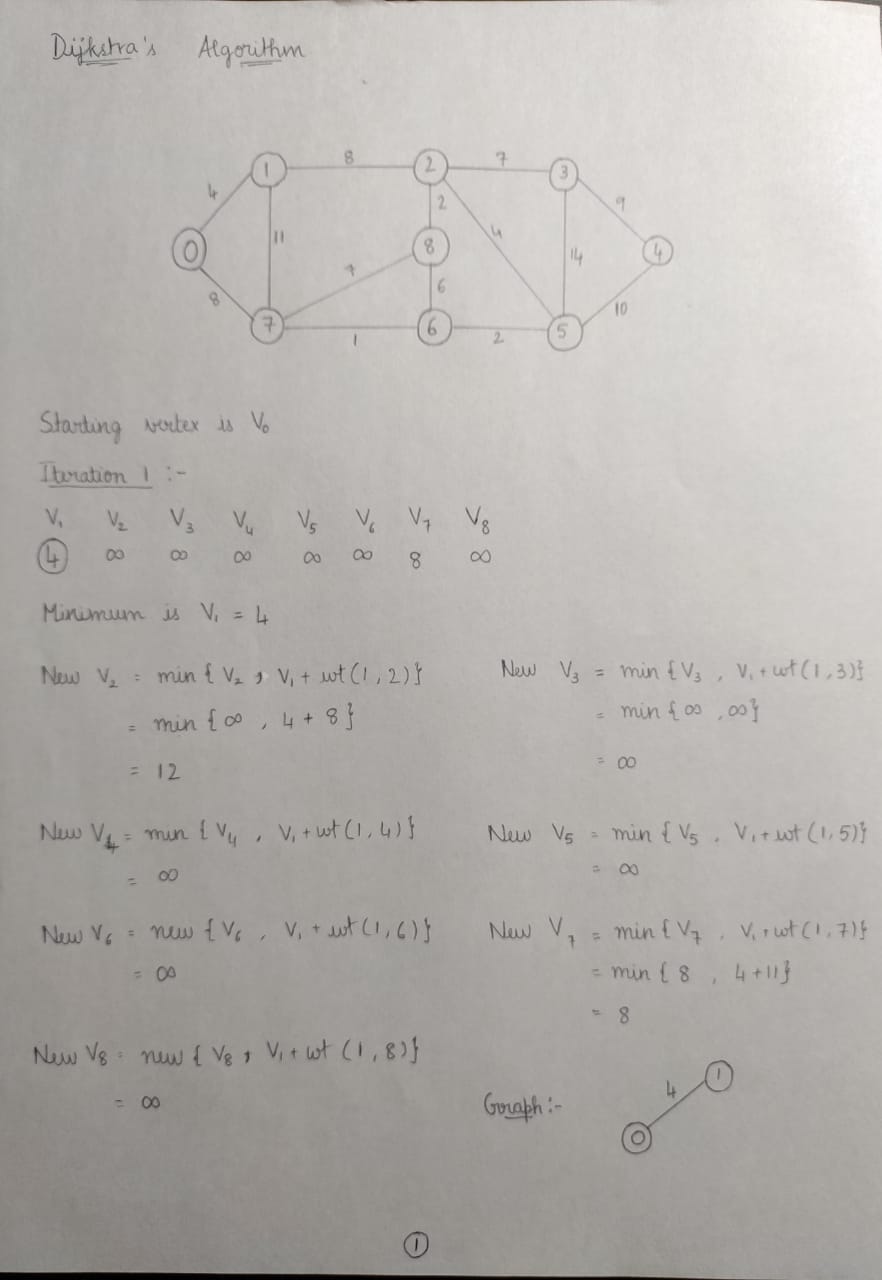 Dijkstra's Algorithm
1 8 2 7 3
4 2 9
11 8 4 14 4
0 7 6
8 10
7 1 6 2 5
Starting vertex is V₀
Iteration 1 :-
V₁ V₂ V₃ V₄ V₅ V₆ V₇ V₈
4 ∞ ∞ ∞ ∞ ∞ 8 ∞
Minimum is V₁ = 4
New V₂ = min { V₂ , V₁ + wt (1, 2)}
= min { ∞ , 4 + 8 }
= 12
New V₃ = min { V₃ , V₁ + wt (1, 3)}
= min { ∞ , ∞}
= ∞
New V₄ = min { V₄ , V₁ + wt (1, 4)}
= ∞
New V₅ = min { V₅ , V₁ + wt (1, 5)}
= ∞
New V₆ = new { V₆ , V₁ + wt (1, 6)}
= ∞
New V₇ = min { V₇ , V₁ + wt (1, 7)}
= min { 8 , 4 + 11}
= 8
New V₈ = new { V₈ , V₁ + wt (1, 8)}
= ∞
Graph :-
4 1
0
1